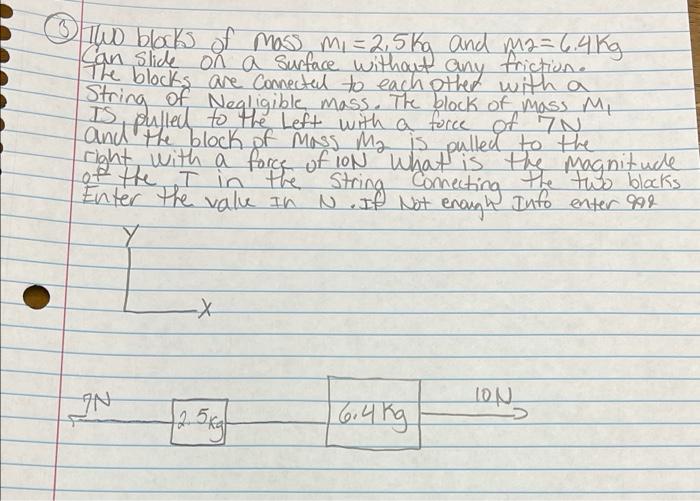 3 Two blocks of mass m1 = 2,5Kg and m2 = 6.4Kg
Can slide on a surface without any friction.
The blocks are Connected to each other with a
String of Negligible mass. The block of mass M1
IS pulled to the Left with a force of 7N
and the block of Mass M2 is pulled to the
right with a force of 10N What is the magnitude
of the T in the String Connecting the two blocks
Enter the value In N. If Not enough Info enter 999
Y
X
7N
2.5Kg
6.4Kg
10N